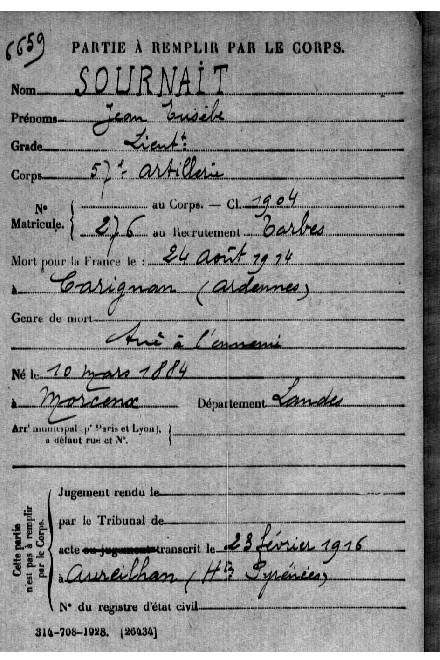 6659
PARTIE À REMPLIR PAR LE CORPS.
Nom SOURNAIT
Prénoms Jean Eusèbe
Grade Lieut.t
Corps 57e Artillerie
N° Matricule. { au Corps. — Cl. 1904
276 au Recrutement Tarbes
Mort pour la France le : 24 Août 1914
à Carignan (Ardennes)
Genre de mort
Tué à l'ennemi
Né le 10 mars 1884
à Morcenx Département Landes
Arrt municipal (pr Paris et Lyon), à défaut rue et N°. {
Cette partie n'est pas à remplir par le Corps.
Jugement rendu le
par le Tribunal de
acte ou jugement transcrit le 23 février 1916
à Aureilhan (Htes Pyrénées)
N° du registre d'état civil
314-708-1928. [26434]